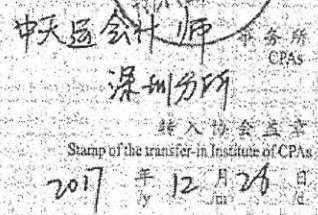 中天运会计师事务所
CPAs
深圳分所
转入协会盖章
Stamp of the transfer-in Institute of CPAs
2017年12月28日
/y /m /d